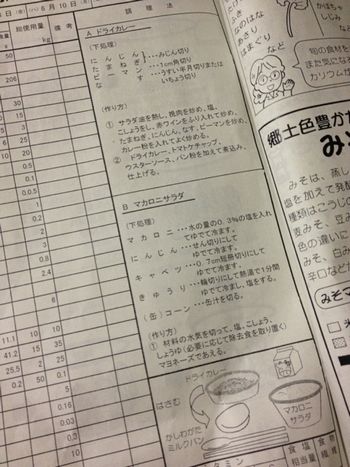 日(金) 6月10日
調理法
総使用量 備考
kg
A ドライカレー
(下処理)
にんじん
たまねぎ
みじん切り
ピーマン…1cm角切り
なす…うすい半月切りまたは
いちょう切り
(作り方)
① サラダ油を熱し、挽肉を炒め、塩、
こしょうをし、赤ワインをふり入れて炒め、
たまねぎ、にんじん、なす、ピーマンを炒め、
カレー粉を入れてよく炒める。
② ドライカレー、トマトケチャップ、
ウスターソース、パン粉を加えて煮込み、
仕上げる。
B マカロニサラダ
(下処理)
マカロニ…水の量の0.3%の塩を入れ
てゆでて冷ます。
にんじん…せん切りにして
ゆでて冷ます。
キャベツ…0.7cm短冊切りにして
ゆでて冷ます。
きゅうり…輪切りにして熱湯で1分間
ゆでて冷まし、塩をする。
(缶)コーン…缶汁を切る。
(作り方)
① 材料の水気を切って、塩、こしょう、
しょうゆ(必要に応じて除去食を取り置く)
マヨネーズであえる。
ドライカレー
はさむ
かしわがた
ミルクパン
マカロニ
サラダ
50
206
30
20
10
5
1
0.5
0.1
0.05
1
0.2
2
0.4
0.2
0.6
11.1 10
41.2 35
25.5 25
0.2 50
10
15
2
0.1
0.16
0.03
0.3
0.03
ふき
なのはな
あさり
はまぐり など
かぼちゃ
しじみ
など
旬の食材を
また気にな
カリウムが
郷土色豊か
みそは、蒸し
塩を加えて発酵
種類はこうじの
麦みそ、豆み
色の違いに
そ、白み
辛口など
みそこ
食塩
相当量
食物
繊維
タミン